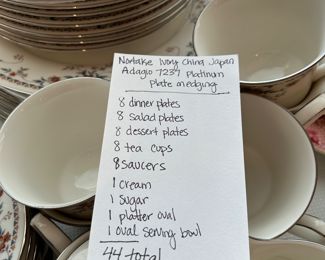 Noritake Ivory China Japan
Adagio 7237 Platinum
Plate on edging
8 dinner plates
8 salad plates
8 dessert plates
8 tea cups
8 saucers
1 cream
1 sugar
1 platter oval
1 oval serving bowl
44 total